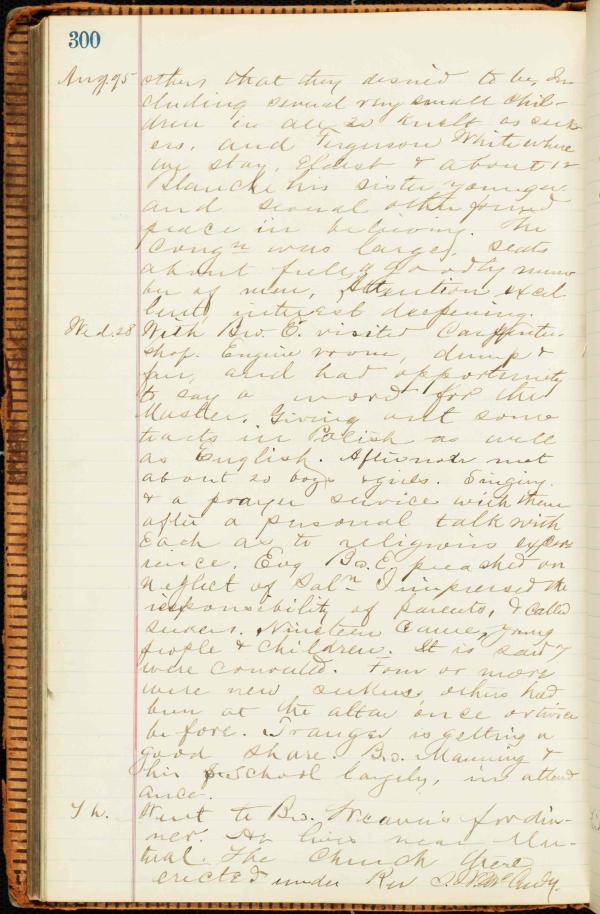 300
Aug. 95 others that they desired to be, In-
cluding several very small chil-
dren in all 20 knelt as seek-
ers, and Ferguson White where
we stay, Eldest & about 12
Blanche his sister younger
and several others found
peace in believing. The
Congn was large, seats
about full, a goodly num-
ber of men, Attention excel-
lent, interest deepening.
Wed. 28 With Bro. E. visited Carpenter
shop. Engine room, dump &
fan, and had opportunity
to say a word for the
Master. Giving out some
tracts in Polish as well
as English. Afternoon met
about 20 boys & girls. Singing
& a prayer service with them
after a personal talk with
each as to religious expe-
rience. Evg Bro. E. preached on
Neglect of Saln I impressed the
responsibility of parents, & called
seekers. Nineteen came, young
people & children. It is said 7
were converted. Four or more
were new seekers, others had
been at the altar once or twice
before. Tranger is getting a
good share. Bro. Manning &
his S. School largely, in attend-
ance.
Th. Went to Bro. for din-
ner. He lives near Mu-
tual. The Church there
erected under Rev